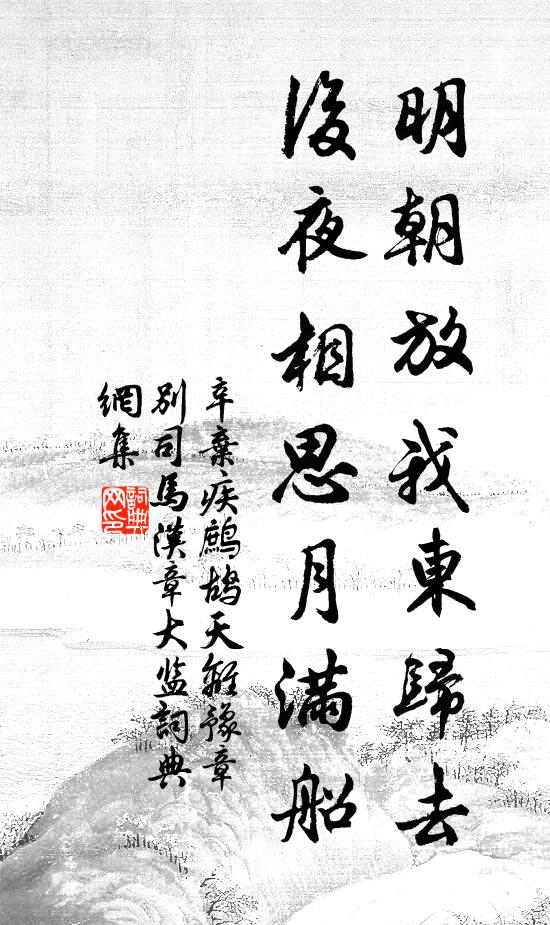 明朝放我東歸去
後夜相思月滿船
辛棄疾鷓鴣天離豫章
別司馬漢章大监詞典
網集
詞典
网印